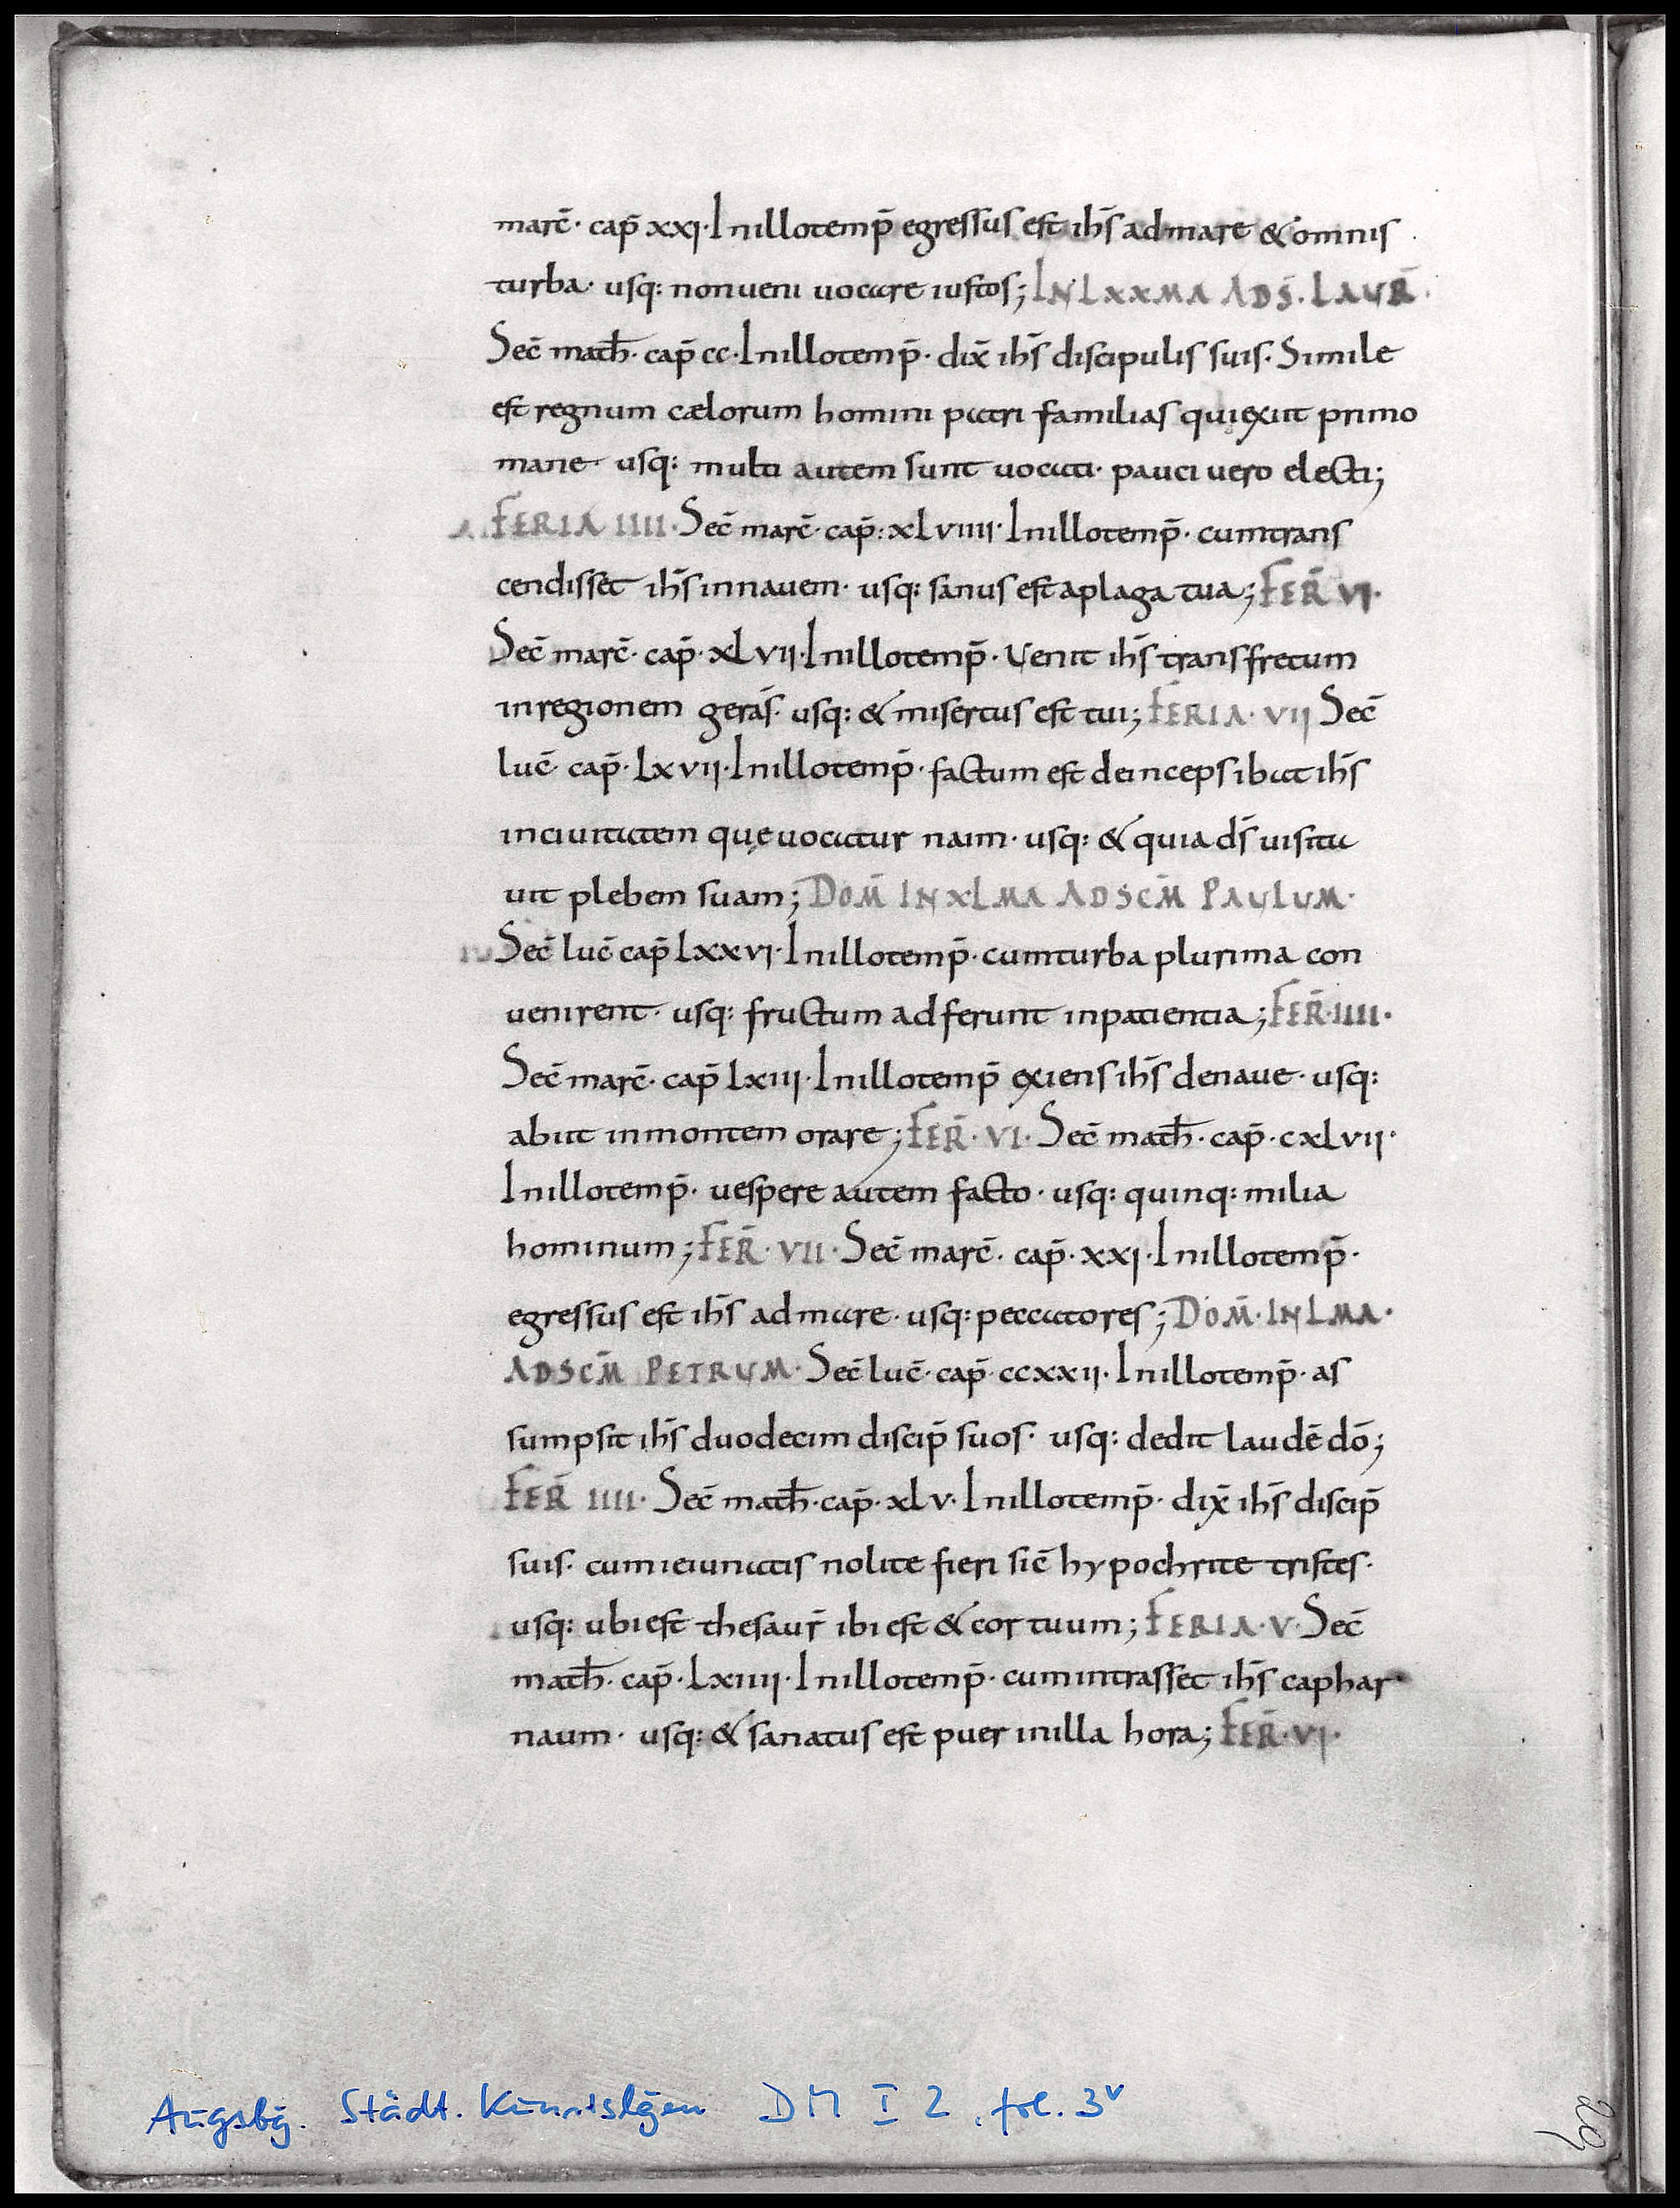 marc̄· cap̄ xxı· Inillotemp̄ egressus est ih̄s admare & omnis
turba· usq: nonueni uocare iustos; IN LXXMA AD S̄. LAUR̄.
Sec̄ math̄· cap̄ cc· Inillotemp̄· dix̄ ih̄s discipulis suis· Simile
est regnum cælorum homini patri familias quiexiit primo
mane· usq: multi autem sunt uocati· pauci uero electi;
FERIA IIII· Sec̄ marc̄· cap̄: xLvıııı· Inillotemp̄· cumtrans
cendisset ih̄s innauem· usq: sanus est aplaga tua; FER̄ VI·
Sec̄ marc̄· cap̄· xLvıı· Inillotemp̄· Uenit ih̄s transfretum
inregionem geras̄· usq: & misertus est tui; FERIA· VII Sec̄
luc̄· cap̄· Lxvıı· Inillotemp̄· factum est deinceps ibat ih̄s
inciuitatem quęuocatur naim· usq: & quia ds̄ uisita
uit plebem suam; DOM̄ IN XLMA AD SCM̄ PAULUM·
Sec̄ luc̄ cap̄ Lxxvı· Inillotemp̄· cumturba plurima con
uenirent· usq: fructum adferunt inpatientia; FER̄· IIII·
Sec̄ marc̄· cap̄ Lxııı· Inillotemp̄ exiens ih̄s denaue· usq:
abiit inmontem orare; FER̄· VI· Sec̄ math̄· cap̄· cxLvıı·
Inillotemp̄· uespere autem facto· usq: quinq: milia
hominum; FER̄· VII· Sec̄ marc̄· cap̄· xxı· Inillotemp̄·
egressus est ih̄s admare· usq: peccatores; DOM̄· IN LMA·
AD SCM̄ PETRUM· Sec̄ luc̄· cap̄· ccxxıı· Inillotemp̄· as
sumpsit ih̄s duodecim discip̄ suos· usq: dedit laudē dō;
FER̄ IIII· Sec̄ math̄· cap̄· xLv· Inillotemp̄· dix̄ ih̄s discip̄
suis· cumieiunatis nolite fieri sic̄ hypochrite tristes·
usq: ubiest thesaur̄ ibi est & cor tuum; FERIA· V· Sec̄
math̄· cap̄· Lxıııı· Inillotemp̄· cumintrasset ih̄s caphar
naum· usq: & sanatus est puer inilla hora; FER̄· VI·
Augsbg. Städt. Kunstslgen DM I 2, fol. 3v